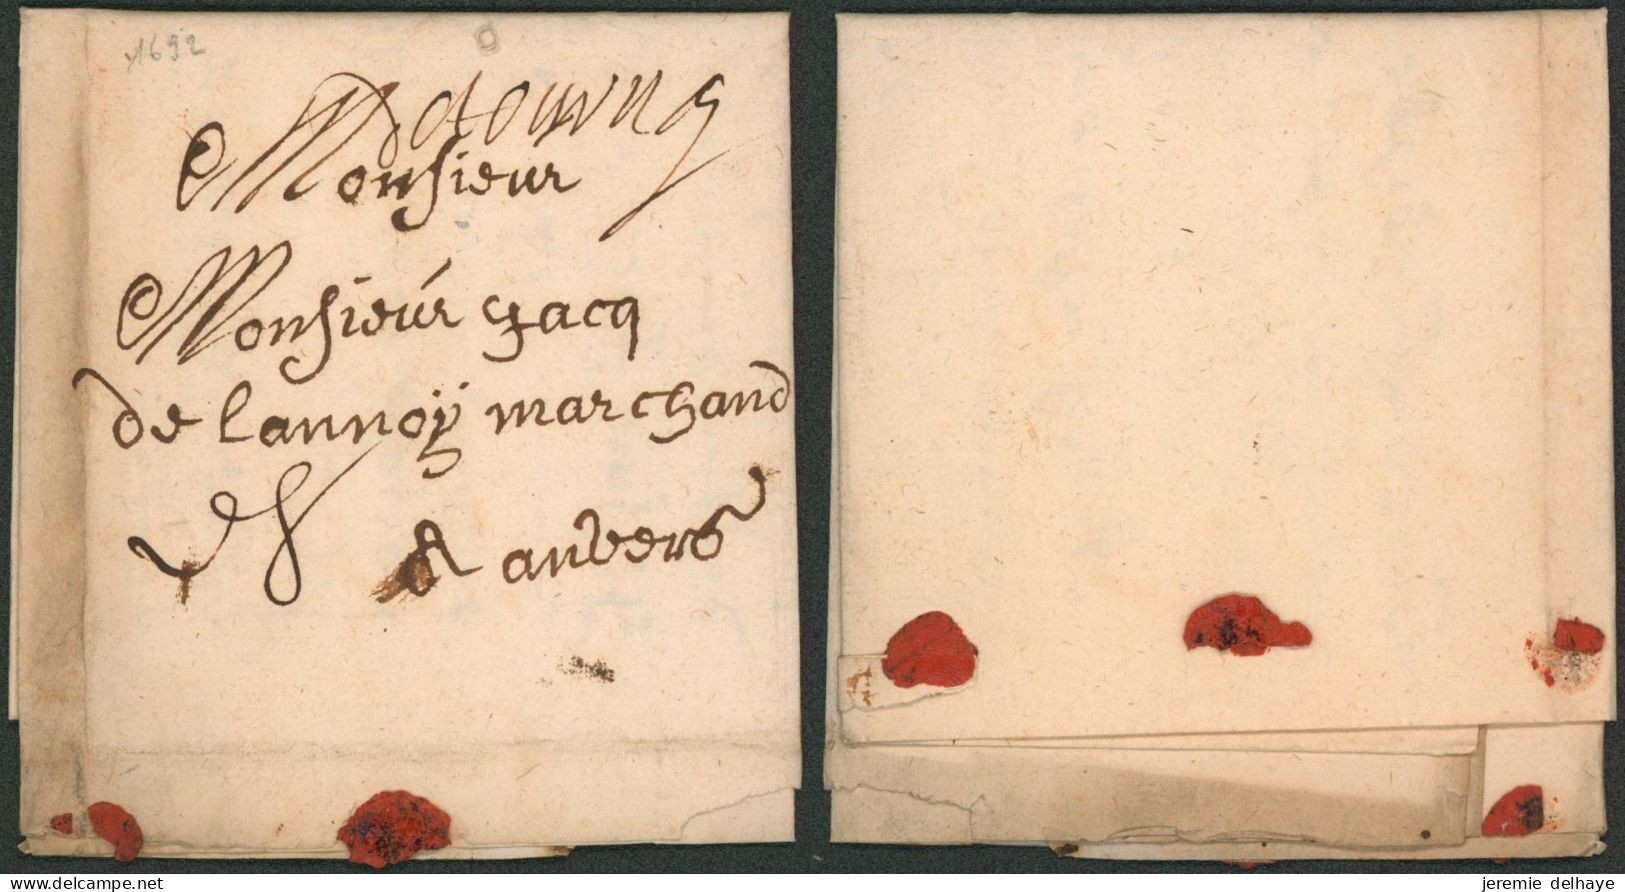 1692
de tournay
Monsieur
Monsieúr Jacq
de lannoÿ marchand
A anvers
delcampe.net
jeremie delhaye